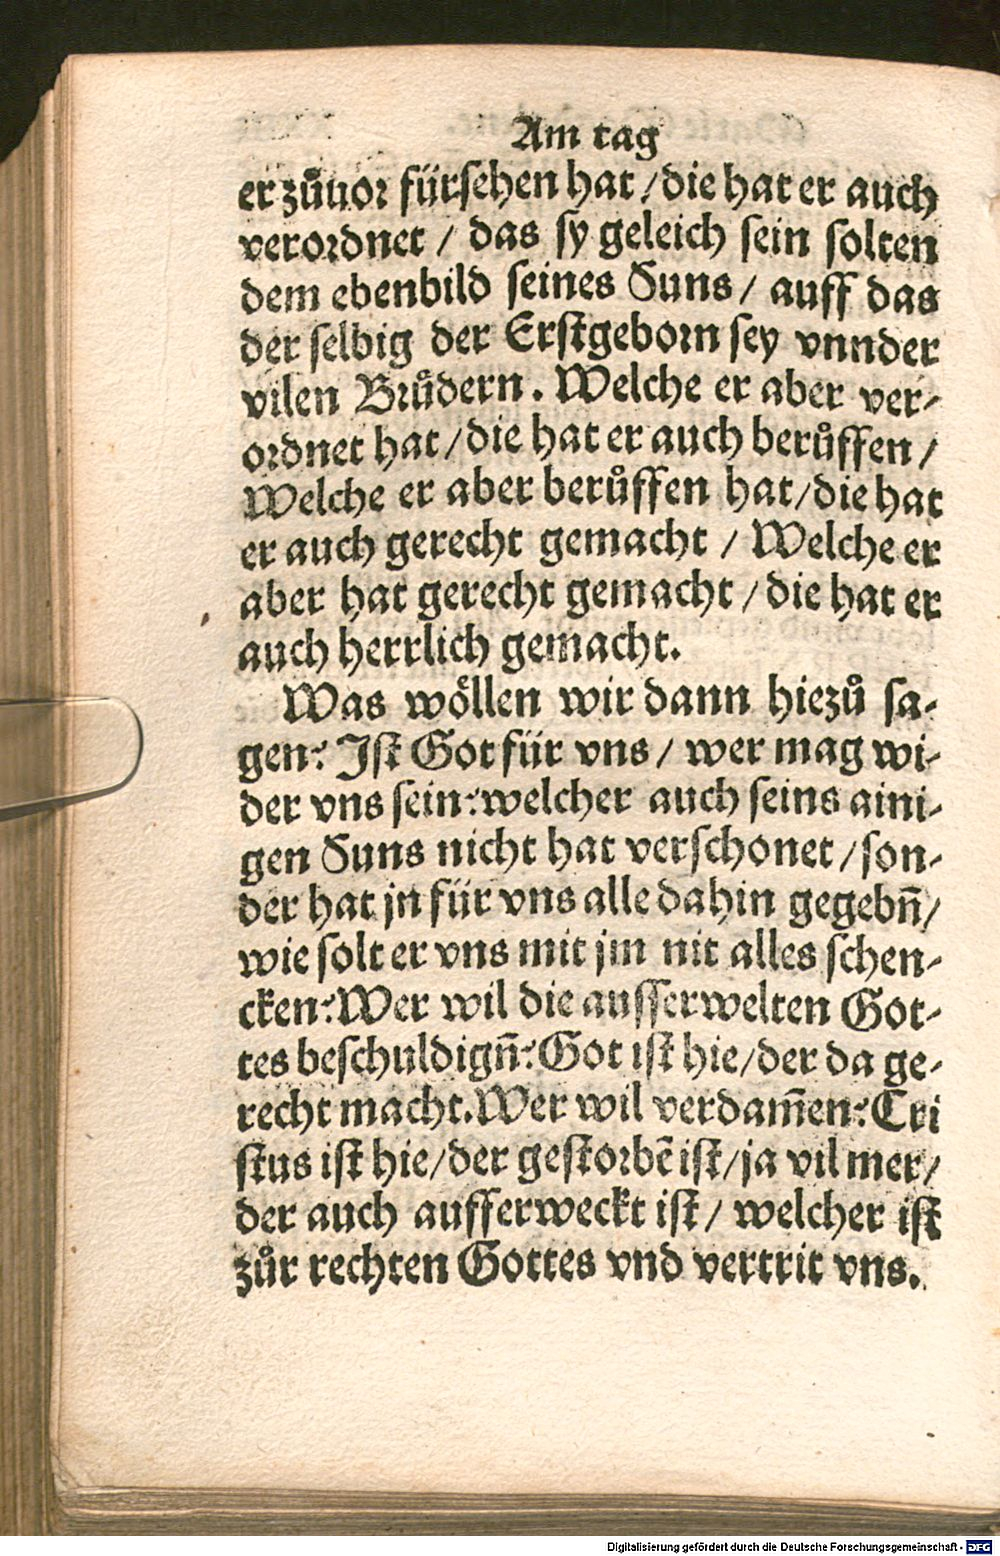 Am tag
er zůuor fürsehen hat / die hat er auch
verordnet / das sy geleich sein solten
dem ebenbild seines Suns / auff das
der selbig der Erstgeborn sey vnnder
vilen Brůdern. Welche er aber ver-
ordnet hat / die hat er auch berůffen /
Welche er aber berůffen hat / die hat
er auch gerecht gemacht / Welche er
aber hat gerecht gemacht / die hat er
auch herrlich gemacht.
Was wöllen wir dann hiezů sa-
gen? Ist Got für vns / wer mag wi-
der vns sein? welcher auch seins aini-
gen Suns nicht hat verschonet / son-
der hat jn für vns alle dahin gegebñ /
wie solt er vns mit jm nit alles schen-
cken? Wer wil die ausserwelten Got-
tes beschuldigñ? Got ist hie / der da ge-
recht macht. Wer wil verdam̃en? Cri
stus ist hie / der gestorbẽ ist / ja vil mer /
der auch aufferweckt ist / welcher ist
zůr rechten Gottes vnd vertrit vns.
Digitalisierung gefördert durch die Deutsche Forschungsgemeinschaft - DFG